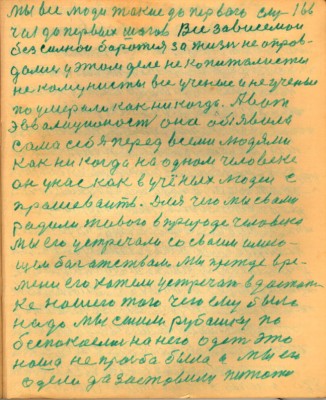 мы все люди такие до первого слу- 166
чая до первых шагов Все зависемой
безсилной баротся за жизн не оправ-
далис у этом деле не копиталисты
не комунисты все ученые и не ученые
поумерали как никогда. А вот
эвалиционост она объявила
сама себя перед всеми людями
как никогда на одном человеке
он у нас как в учёных людей с
прашеваить. Для чего мы свами
радили живого в природе человека
мы его устречали со своим имею-
щем багатствам мы прежде вре-
мени его хотели устречат в достат-
ке нашего того чего ему было
надо мы сшили рубашку по
беспокоелис на него одет это
наша не прозба была а мы его
одели да заставили питат